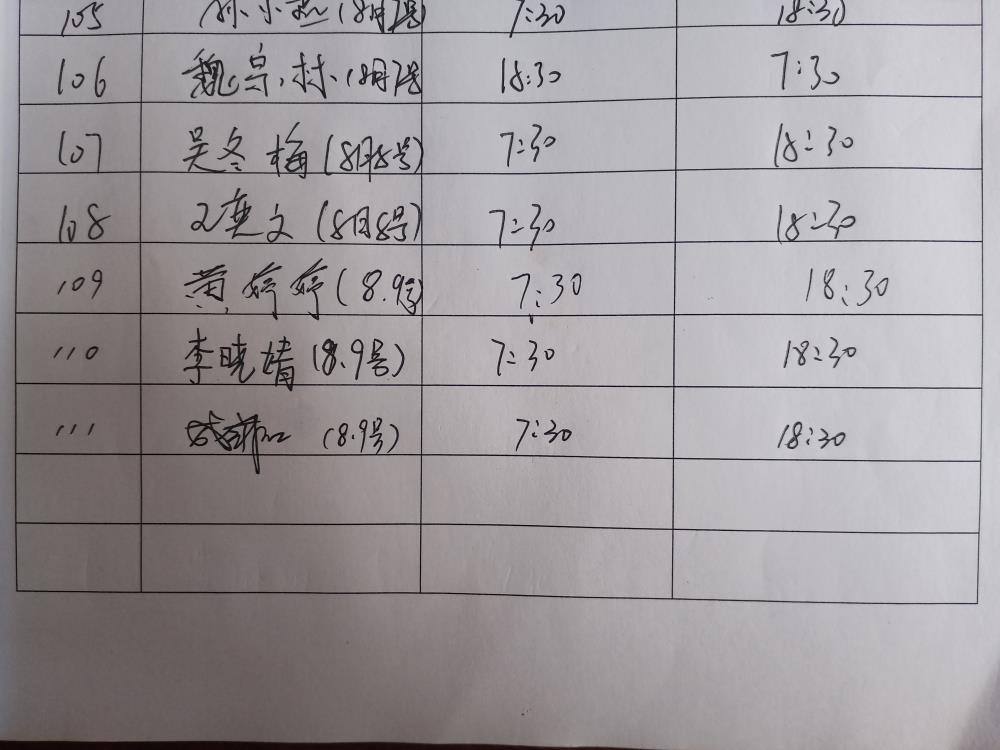 105 孙小燕(8月7号 7:30 18:30
106 魏宗林(8月7号 18:30 7:30
107 吴冬梅(8月8号) 7:30 18:30
108 王奕文(8月8号) 7:30 18:30
109 黄婷婷(8.9号) 7:30 18:30
110 李晓婧(8.9号) 7:30 18:30
111 (8.9号) 7:30 18:30